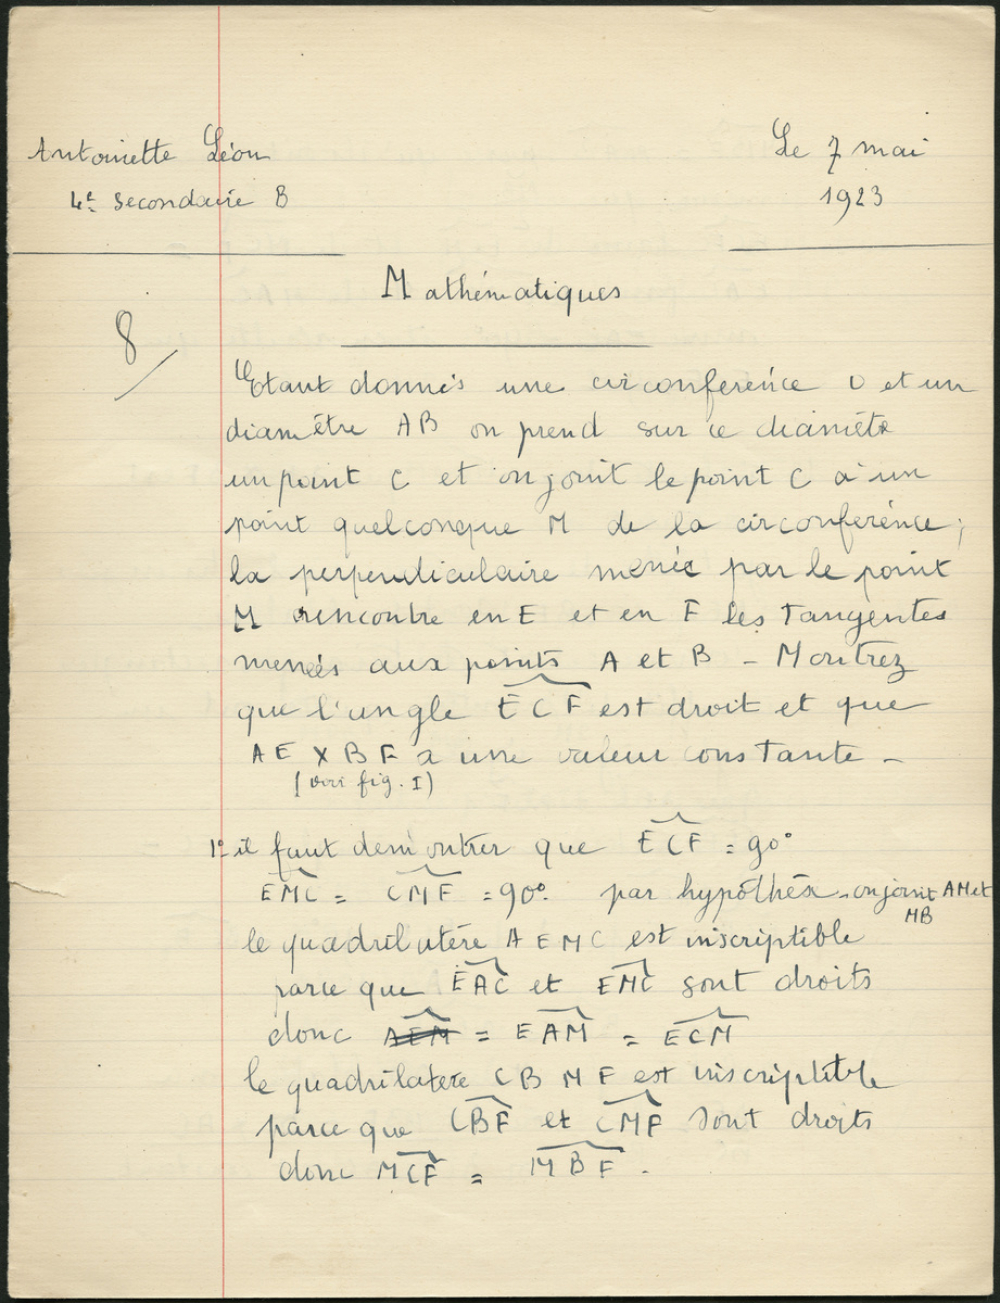 Antoinette Léon
Le 7 mai
4e secondaire B
1923
Mathématiques
8/
Etant donnés une circonference O et un
diamêtre AB on prend sur ce diamètre
un point C et on joint le point C a un
point quelconque M de la circonférence ;
la perpendiculaire menée par le point
M rencontre en E et en F les tangentes
menés aux points A et B - Montrez
que l'angle ECF est droit et que
AE X BF a une valeur constante -
(voir fig. I)
1° il faut demontrer que ECF = 90°
EMC = CMF = 90°. par hypôthése - on joint AM et
MB
le quadrilatère AEMC est inscriptible
parce que EAC et EMC sont droits
donc AEM = EAM = ECM
le quadrilatère CBMF est inscriptible
parce que CBF et CMF sont droits
donc MCF = MBF.